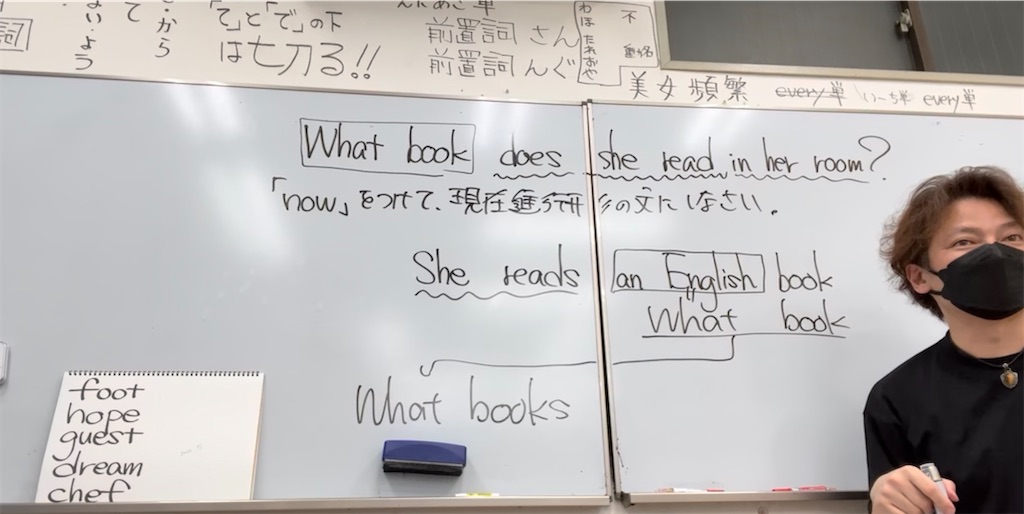 から
ない・よう
「て」と「で」の下
は七刀る!!
前置詞 さん
前置詞 んぐ
わほたれおや
不
美女頻繁 every単 いーち単 every単
What book does she read in her room?
「now」をつけて、現在進行形の文にしなさい。
She reads an English book
What book
What books
foot
hope
guest
dream
chef